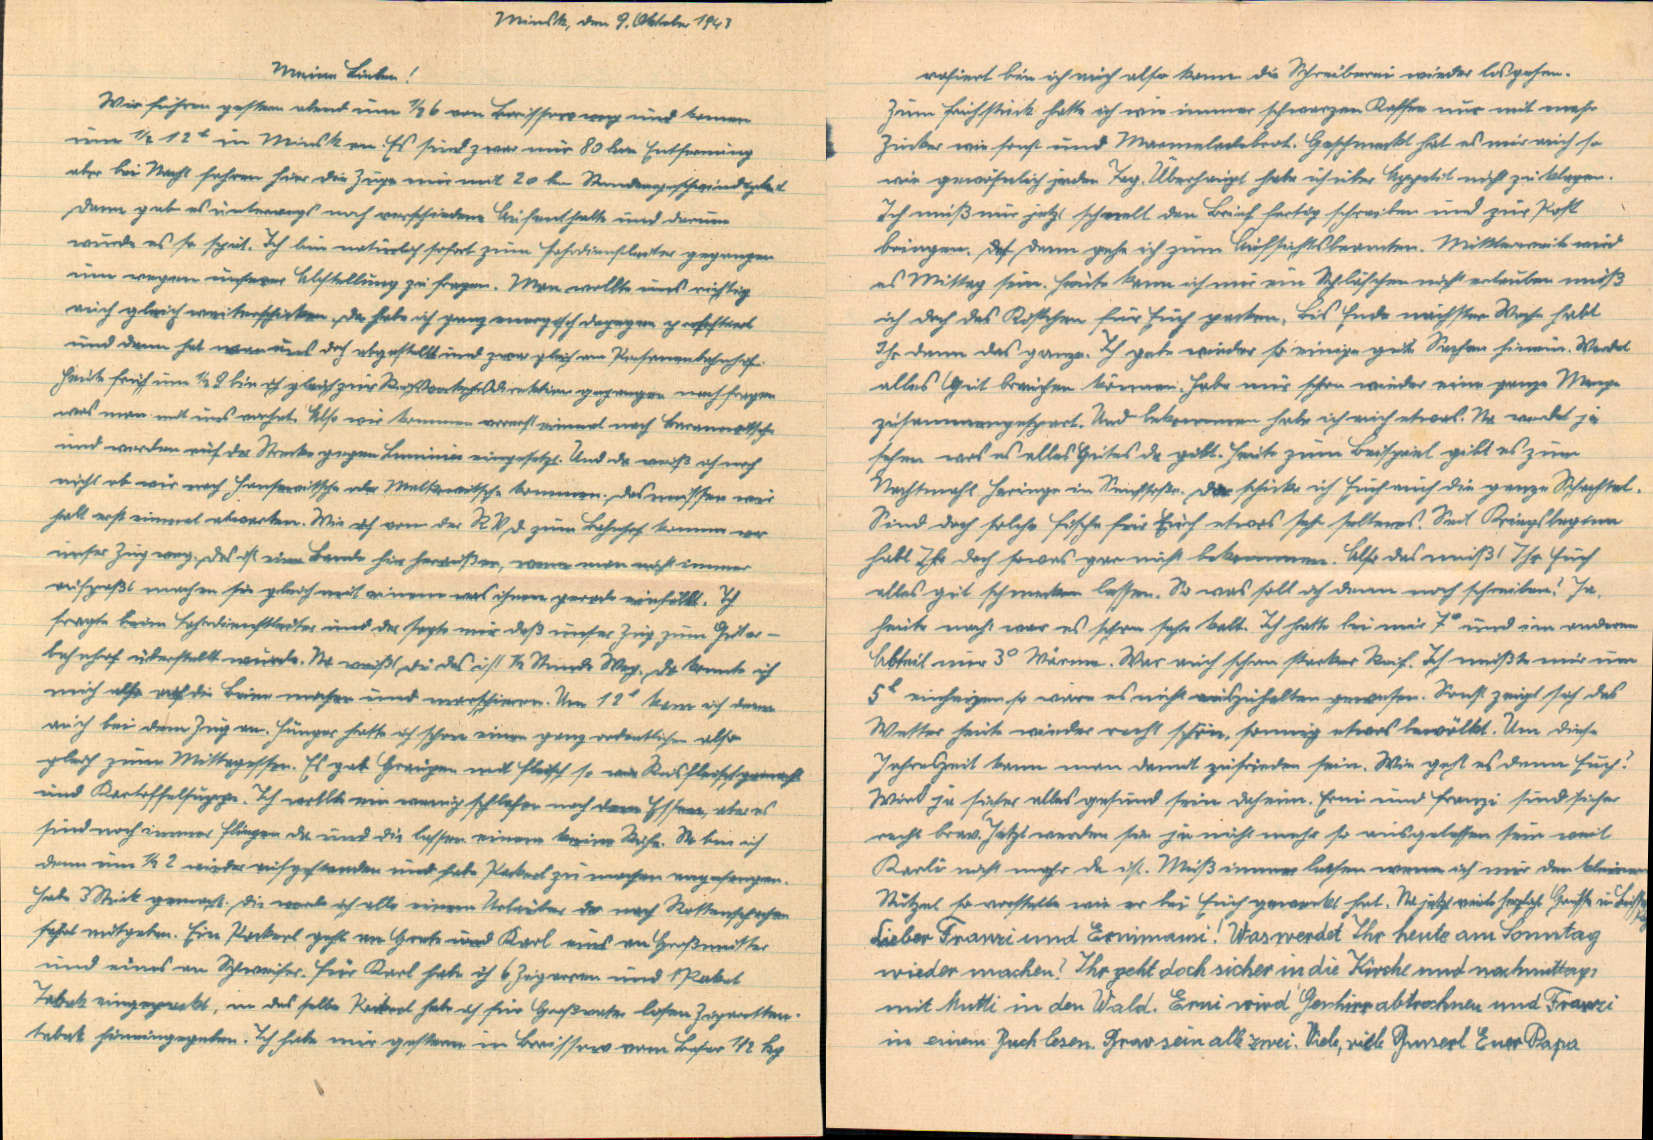 Minsk, den 9. Oktober 1943
Meine Lieben!
Wir fuhren gestern abend um ½6 von Borissow weg und kamen
um ½ 12h in Minsk an. Es sind zwar nur 80 km Entfernung
aber bei Nacht fahren hier die Züge nur mit 20 km Stundengeschwindigkeit
Dann gab es unterwegs noch verschiedene Aufenthalte und darum
wurde es so spät. Ich bin natürlich sofort zum Fahrdienstleiter gegangen
um wegen unserer Abstellung zu fragen. Man wollte uns richtig
auch gleich weiterschicken, da habe ich ganz energisch dagegen protestiert
und dann hat man uns doch abgestellt und zwar gleich am Personenbahnhof.
Heute früh um ½ 9 bin ich gleich zur Reichsverkehrsdirektion gegangen nachfragen
was man mit uns vorhat. Also wir kommen vorerst einmal nach Baranowitsche
und werden auf der Strecke gegen Luninin eingesetzt. Und da weiß ich noch
nicht ob wir nach Hansewitsche oder Malkowitsche kommen. Das müssen wir
halt erst einmal abwarten. Wie ich von der RVD zum Bahnhof komme war
unser Zug weg. Das ist eine Bande hier heraußen, wenn man nicht immer
aufpaßt machen sie gleich mit einem was ihnen gerade einfällt. Ich
fragte beim Fahrdienstleiter und der sagte mir daß unser Zug zum Güter-
bahnhof überstellt wurde. Na weißt du das ist ½ Stunde Weg. Da konnte ich
mich also auf die Beine machen und marschieren. Um 12h kam ich dann
auch bei dem Zug an. Hunger hatte ich schon einen ganz ordentlichen also
gleich zum Mittagessen. Es gab Graupen mit Fleisch so wie Reisfleisch gemacht
und Kartoffelsuppe. Ich wollte ein wenig schlafen nach dem Essen, aber es
sind noch immer Fliegen da und die lassen einem keine Ruhe. So bin ich
dann um ½ 2 wieder aufgestanden und habe Packerl zu machen angefangen.
Habe 3 Stück gemacht. Die werde ich alle einem Urlauber der nach Rottenschachen
fährt mitgeben. Ein Packerl geht an Grete und Karl eins an Großmutter
und eines an Schweiser. Für Karl habe ich 6 Zigarren und 1 Paket
Tabak eingepackt, in das selbe Packerl habe ich für Großvater losen Zigaretten-
tabak hineingegeben. Ich habe mir gestern in Borissow vom Basar ½ kg
rasiert bin ich auch also kann die Schreiberei wieder losgehen.
Zum Frühstück hatte ich wie immer schwarzen Kaffee nur mit mehr
Zucker wie sonst und Marmeladebrot. Geschmeckt hat es mir auch so
wie gewöhnlich jeden Tag. Überhaupt habe ich über Appetit nicht zu klagen.
Ich muß nur jetzt schnell den Brief fertig schreiben und zur Post
bringen. Dann gehe ich zum Aufsichtsbeamten. Mittlerweile wird
es Mittag sein. Heute kann ich mir ein Schläfchen nicht erlauben muß
ich doch das Kistchen für Euch packen, bis Ende nächster Woche habt
Ihr dann das ganze. Ich gebe wieder so einige gute Sachen hinein. Werdet
alles Gut brauchen können. Habe mir schon wieder eine ganze Menge
zusammengespart. Und bekommen habe ich auch etwas. Na werdet ja
sehen was es alles Gutes da gibt. Heute zum Beispiel gibt es zum
Nachtmahl Heringe in Senfsoße. Da schicke ich Euch auch die ganze Schachtel.
Sind doch solche Fische für Euch etwas sehr seltenes. Seit Kriegsbeginn
habt Ihr doch sowas gar nicht bekommen. Also das müßt Ihr Euch
alles gut schmecken lassen. So was soll ich denn noch schreiben? Ja,
heute nacht war es schon sehr kalt. Ich hatte bei mir 7° und im anderen
Abteil nur 3° Wärme. War auch schon starker Reif. Ich mußte mir um
5h einheizen so wäre es nicht auszuhalten gewesen. Sonst zeigt sich das
Wetter heute wieder recht schön, sonnig etwas bewölkt. Um diese
Jahreszeit kann man damit zufrieden sein. Wie geht es denn Euch?
Wird ja sicher alles gesund sein daheim. Erni und Franzi sind sicher
recht brav. Jetzt werden sie ja nicht mehr so ausgelassen sein weil
Karli nicht mehr da ist. Muß immer lachen wenn ich mir den kleinen
Stutzel so vorstelle wie er bei Euch geweckt hat. Na jetzt viele herzliche Grüße und Bussi
Lieber Franzi und Ernimausi! Was werdet Ihr heute am Sonntag
wieder machen? Ihr geht doch sicher in die Kirche und nachmittags
mit Mutti in den Wald. Erni wird Geschirr abtrocknen und Franzi
in einem Buch lesen. Brav sein alle zwei. Viele, viele Busserl Euer Papa